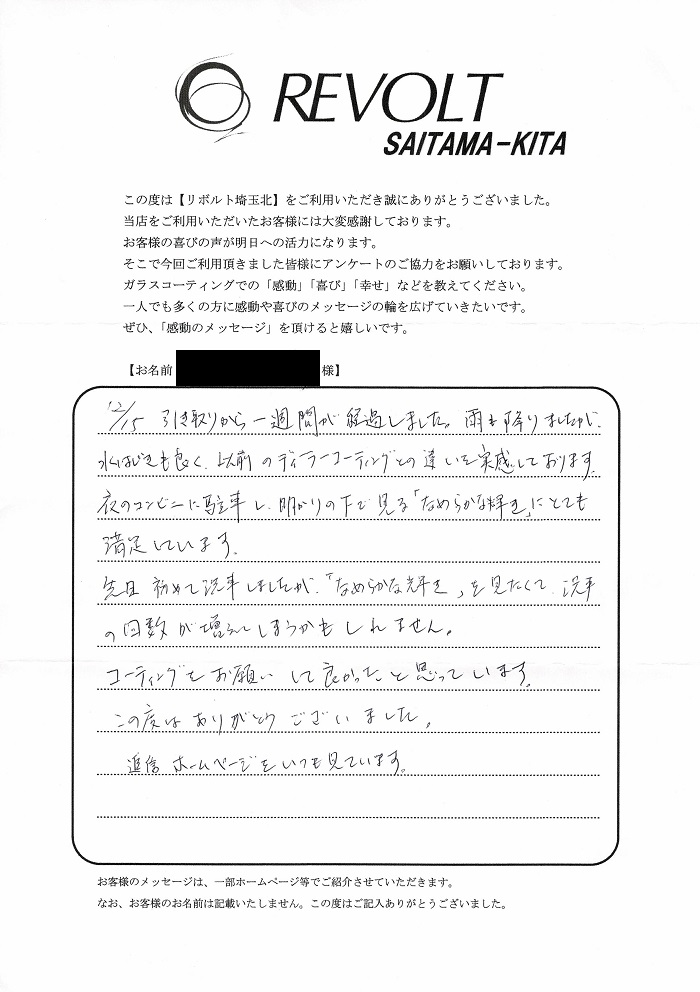 REVOLT
SAITAMA-KITA
この度は【リボルト埼玉北】をご利用いただき誠にありがとうございました。
当店をご利用いただいたお客様には大変感謝しております。
お客様の喜びの声が明日への活力になります。
そこで今回ご利用頂きました皆様にアンケートのご協力をお願いしております。
ガラスコーティングでの「感動」「喜び」「幸せ」などを教えてください。
一人でも多くの方に感動や喜びのメッセージの輪を広げていきたいです。
ぜひ、「感動のメッセージ」を頂けると嬉しいです。
【お名前 様】
12/15 引き取りから一週間が経過しました。雨も降りましたが、
水はじきも良く、以前のディラーコーティングとの違いを実感しております。
夜のコンビニに駐車し、明かりの下で見る「なめらかな輝き」にとても
満足しています。
先日初めて洗車しましたが、「なめらかな輝き」を見たくて、洗車
の回数が増えてしまうかもしれません。
コーティングをお願いして良かったと思っています。
この度はありがとうございました。
追信 ホームページをいつも見ています。
お客様のメッセージは、一部ホームページ等でご紹介させていただきます。
なお、お客様のお名前は記載いたしません。この度はご記入ありがとうございました。